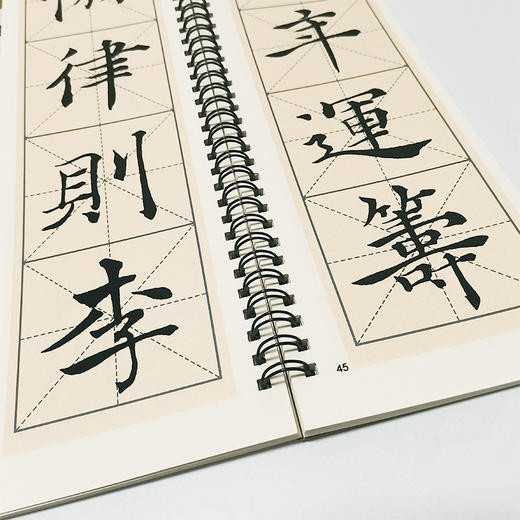 協律則李
年運籌
45